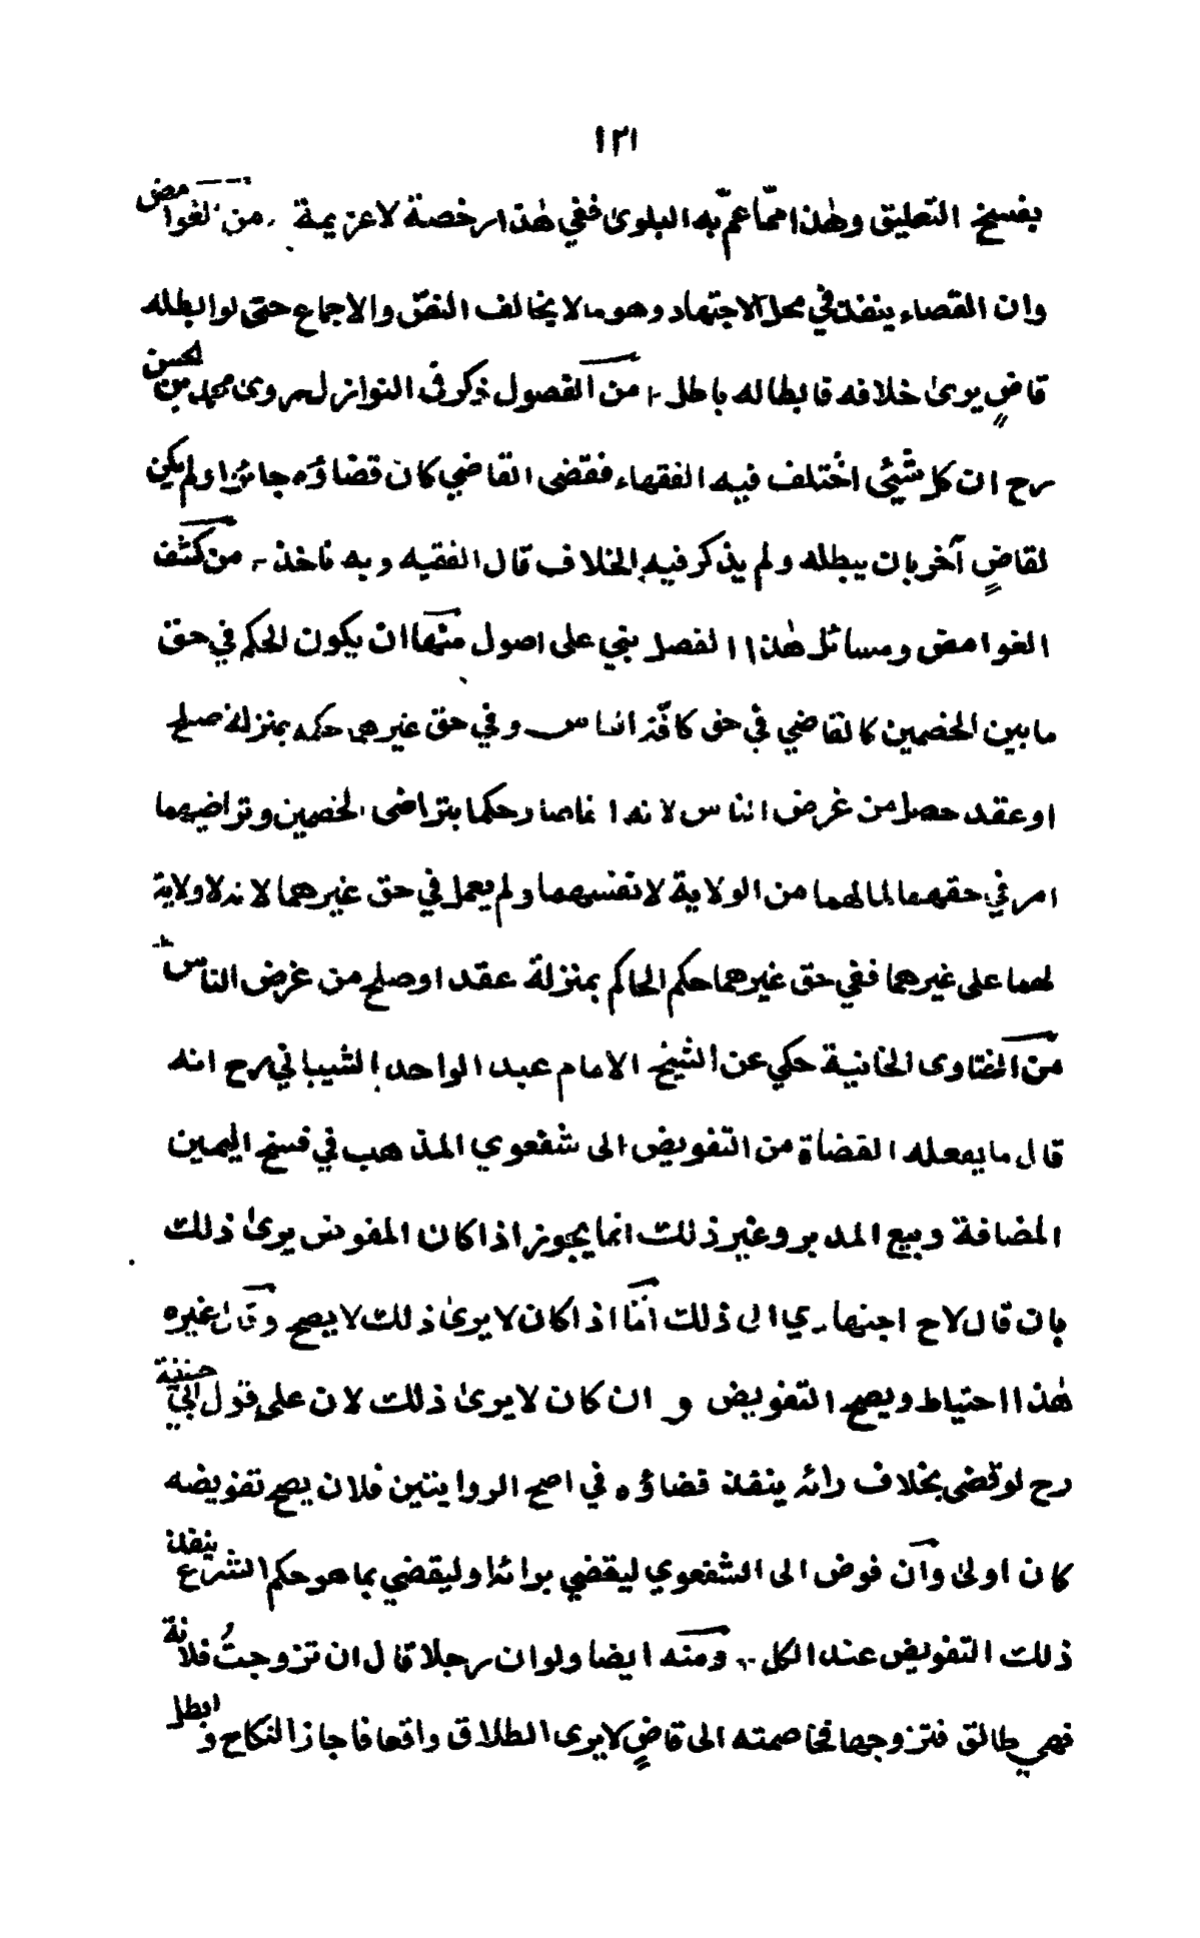 ١٣١
بفسخ التعليق وهٰذا ممّا عمّ به البلوىٰ ففي هٰذا رخصة لا عزيمة من الغوامض
وان القضاء ينفذ في محل الاجتهاد وهو ما لا يخالف النصّ والاجماع حتى لو ابطله
قاضٍ يرىٰ خلافه فابطاله باطل من الفصول ذكر في النوازل روىٰ محمد بن الحسن
رح ان كل شيئى اختلف فيه الفقهاء فقضى القاضي كان قضاؤه جائزا ولم يكن
لقاضٍ آخر بان يبطله ولم يذكر فيه الخلاف قال الفقيه وبه ناخذ من كشف
الغوامض ومسائل هٰذا الفصل بني على اصول منها ان يكون الحكم في حق
ما بين الخصمين كالقاضي في حق كافّة الناس وفي حق غيرهى حكمه بمنزلة صلح
او عقد حصل من غرض الناس لانه انما صار حكما بتراضى الخصمين وتراضيهما
امر في حقهما لما لهما من الولاية لانفسهما ولم يعمل في حق غيرهما لانه لا ولاية
لهما على غيرهما ففي حق غيرهما حكم الحاكم بمنزلة عقد او صلح من غرض الناس
من الفتاوى الخانية حكي عن الشيخ الامام عبد الواحد الشيباني رح انه
قال ما يفعله القضاة من التفويض الى شفعوي المذهب في فسخ اليمين
المضافة وبيع المدبر وغير ذلك انما يجوز اذا كان المفوض يرىٰ ذلك
بان قال لاح اجتهادي الى ذلك امّا اذا كان لا يرىٰ ذلك لا يصح وقال غيره
هٰذا احتياط ويصح التفويض و ان كان لا يرىٰ ذلك لان على قول ابي حنيفة
رح لو قضى بخلاف رائه ينفذ قضاؤه في اصح الروايتين فلان يصح تفويضه
كان اولىٰ وان فوض الى الشفعوي ليقضي برائه او ليقضي بما هو حكم الشرع ينفذ
ذلك التفويض عند الكل ومنه ايضا ولو ان رجلا قال ان تزوجتُ فلانة
فهي طالق فتزوجها فخاصمته الى قاضٍ لا يرى الطلاق واقعا فاجاز النكاح وابطل